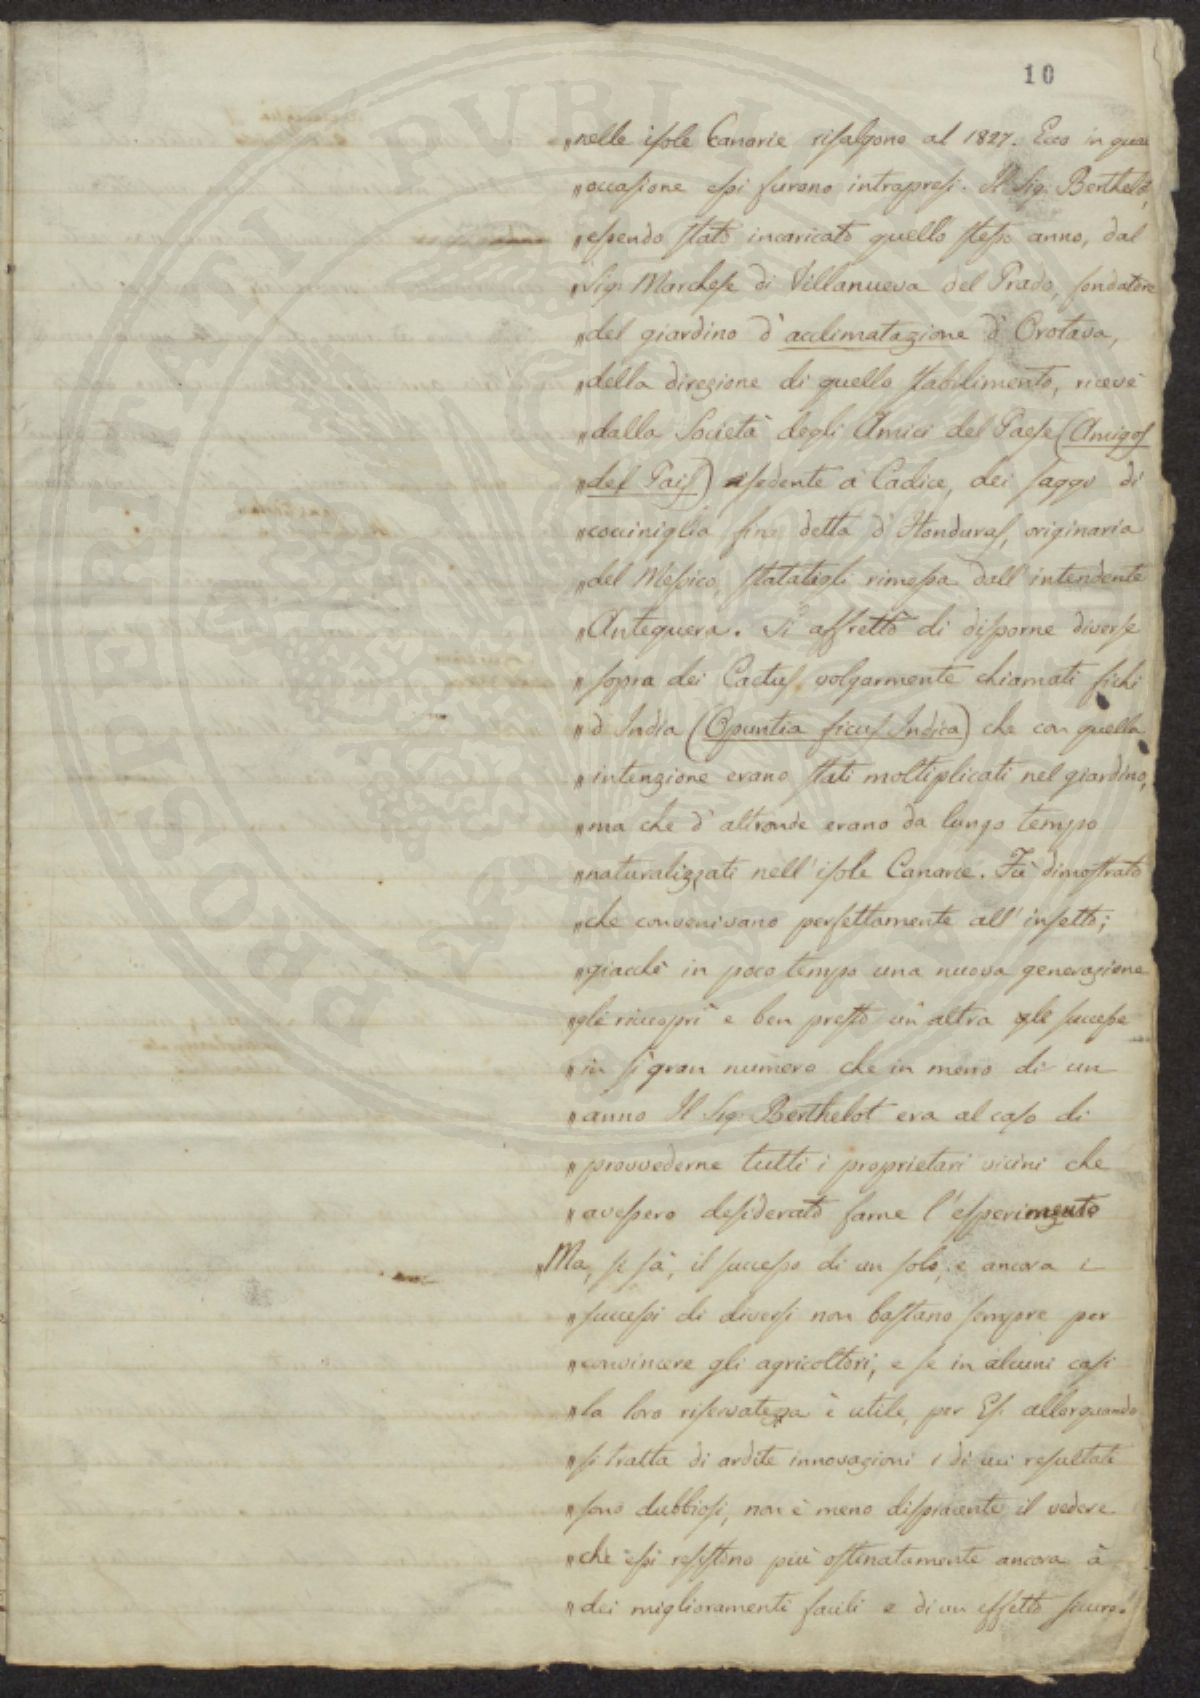 10
"nelle isole Canarie risalgono al 1827. Ecco in qual
"occasione essi furono intrapresi. Il Sig. Berthelot,
"essendo stato incaricato quello stesso anno, dal
"Sig. Marchese di Villanueva del Prado, fondatore
"del giardino d'acclimatazione d'Orotava,
"della direzione di quello stabilimento, ricevè
"dalla Società degli Amici del Paese (Amigos
"del Pais) sedente a Cadice, dei saggi di
"cocciniglia fina detta d'Honduras, originaria
"del Messico, statagli rimessa dall'intendente
"Antequera. Si affrettò di disporne diverse
"sopra dei Cactus, volgarmente chiamati fichi
"d'India (Opuntia ficus Indica) che con quella
"intenzione erano stati moltiplicati nel giardino,
"ma che d'altronde erano da lungo tempo
"naturalizzati nell'isole Canarie. Fù dimostrato
"che convenivano perfettamente all'insetto;
"giacchè in poco tempo una nuova generazione
"gli ricoprì e ben presto un'altra gle successe
"in sì gran numero che in meno di un
"anno Il Sig. Berthelot era al caso di
"provvederne tutti i proprietari vicini che
"avessero desiderato farne l'esperimento
"Ma, si sà, il successo di un solo, e ancora i
"successi di diversi non bastano sempre per
"convincere gli agricoltori, e se in alcuni casi
"la loro riservatezza è utile, per Essi allorquando
"si tratta di ardite innovazioni e di cui resultati
"sono dubbiosi, non è meno dispiacente il vedere
"che essi resistono più ostinatamente ancora à
"dei miglioramenti facili e di un effetto sicuro.
POSTERITATI PUBLI